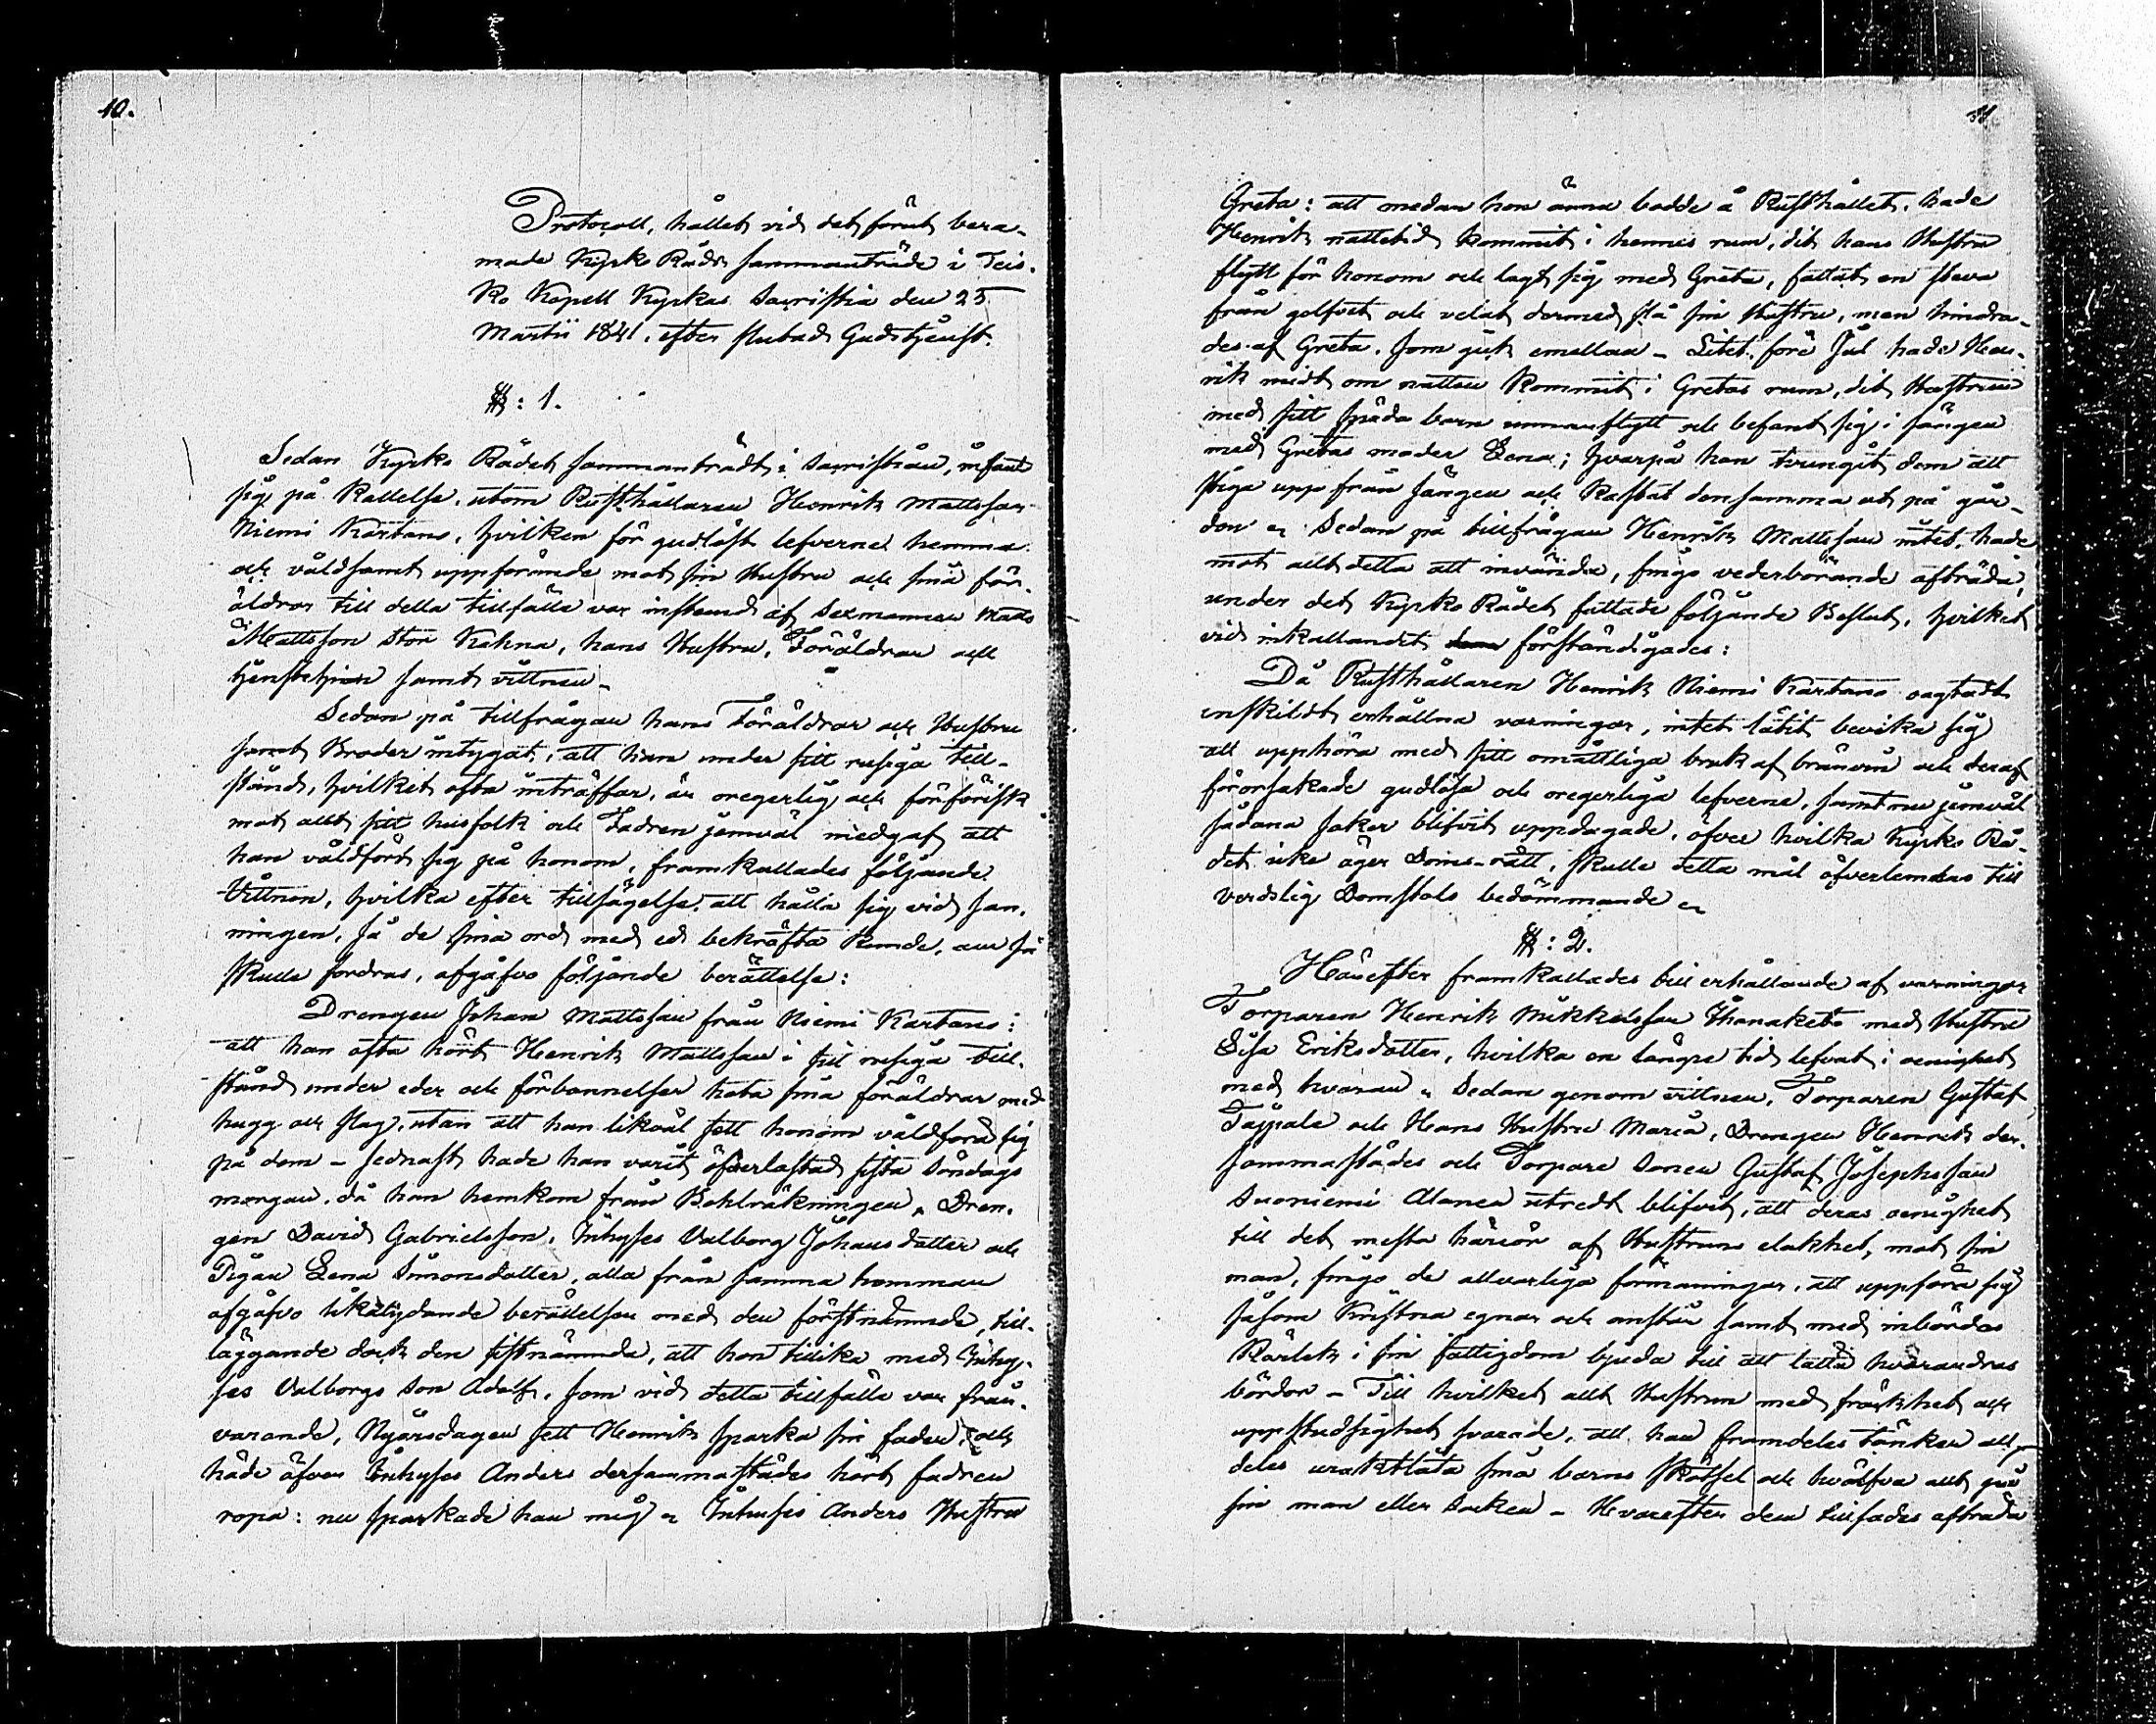 10.
Protocoll, hållet vid det förut bera-
made Kyrko Råds sammanträde i Teis-
ko Kapell Kyrkas Sacristia den 25
Martii 1841, efter slutad Gudstjenst.
§: 1.
Sedan Kyrko Rådet sammanträdt i Sacristian, infant
sig på Kallelse, utom Rusthållaren Henrik Mattsson
Niemi Kartano, hvilken för gudlöst lefverne hemma
och våldsamt uppförande mot sin Hustru och sina för-
äldrar till detta tillfälle var instemd af Sexmannen Matts
Mattsson Stor Kakna, hans Hustru, Föräldrar och
tjenstehjon samt vittnen –
Sedan på tillfrågan hans Föräldrar och Hustru
samt Broder intygat, att han under sitt rusiga till-
stånd, hvilket ofta inträffar, är oregerlig och förförisk
mot allt sitt husfolk och Fadren jemväl medgaf att
han våldfört sig på honom, framkallades följande
Vittnen, hvilka efter tillsägelse att hålla sig vid san-
ningen, så de sina ord med ed bekräfta kunde, om så
skulle fordras, afgåfvo följande berättelse:
Drengen Johan Mattsson från Niemi Kartano:
att han ofta hört Henrik Mattsson i sitt rusiga till-
stånd under eder och förbannelser hota sina föräldrar med
hugg och slag, utan att han likväl sett honom våldföra sig
på dem – sednast hade han varit öfverlastad sista Söndags
morgon, då han hemkom från Bohlräkningen. Dren-
gen David Gabrielsson, Inhyses Valborg Johansdotter och
Pigan Lena Simonsdotter, alla från samma hemman
afgåfvo likalydande berättelser med den förstnämnde, till-
läggande dock den sistnämnda, att hon tillika med Inhy-
ses Valborgs Son Adolf, som vid detta tillfälle var från-
varande, Nyårsdagen sett Henrik sparka sin fader, och
hade äfven Inhyses Anders dersammastädes hört fadren
ropa: nu sparkade han mig – Inhyses Anders Hustru
11
Greta: att medan hon ännu bodde å Rusthållet, hade
Henrik nattetid kommit i hennes rum, dit hans Hustru
flytt för honom och lagt sig med Greta, fattat en stava
från golfvet och velat dermed slå sin Hustru, men hindra-
des af Greta, som gick emellan – Litet före Jul hade Hen-
rik midt om natten kommit i Gretas rum, dit Hustrun
med sitt späda barn undanflytt och befant sig i sängen
med Gretas moder Lena; hvarpå han tvungit dem att
stiga upp från sängen och kastat densamma ut på går-
den – Sedan på tillfrågan Henrik Mattsson intet hade
mot allt detta att invända, fingo vederbörande afträda,
under det Kyrko Rådet fattade följande Beslut, hvilket
vid inkallandet förständigades:
Då Rusthållaren Henrik Niemi Kartano oagtadt
enskildt erhållna varningar, intet låtit bevika sig
att upphöra med sitt omåttliga bruk af brännvin och deraf
förorsakade gudlösa och oregerliga lefverne, samt nu jemväl
sådana saker blifvit uppdagade, öfver hvilka Kyrko Rå-
det icke äger Doms-rätt, skulle detta mål öfverlemnas till
verdslig Domstols bedömmande –
§: 2.
Härefter framkallades till erhållande af varningar
Torparen Henrik Mikkelsson med Hustru
Lisa Eriksdotter, hvilka en längre tid lefvat i oenighet
med hvaran – Sedan genom vittnen, Torparen Gustaf
Täppälä och Hans Hustru Maria, Drengen Henrik der-
sammastädes och Torpare Sonen Gustaf Josephsson
Suoniemi Alanen utredt blifvit, att deras oenighet
till det mesta härrör af Hustruns elakhet, mot sin
man, fingo de allvarliga förmaningar, att uppföra sig
såsom Kristna egnar och anstår samt med inbördes
Kärlek i sin fattigdom bjuda till att lätta hvarandras
bördor – Till hvilket allt Hustrun med fräckhet och
uppstudsighet svarade, att hon framdeles tänker all-
deles uraktlåta sina barns skötsel och hvälfva allt på
sin man eller Socken – Hvarefter dem tillsades afträda